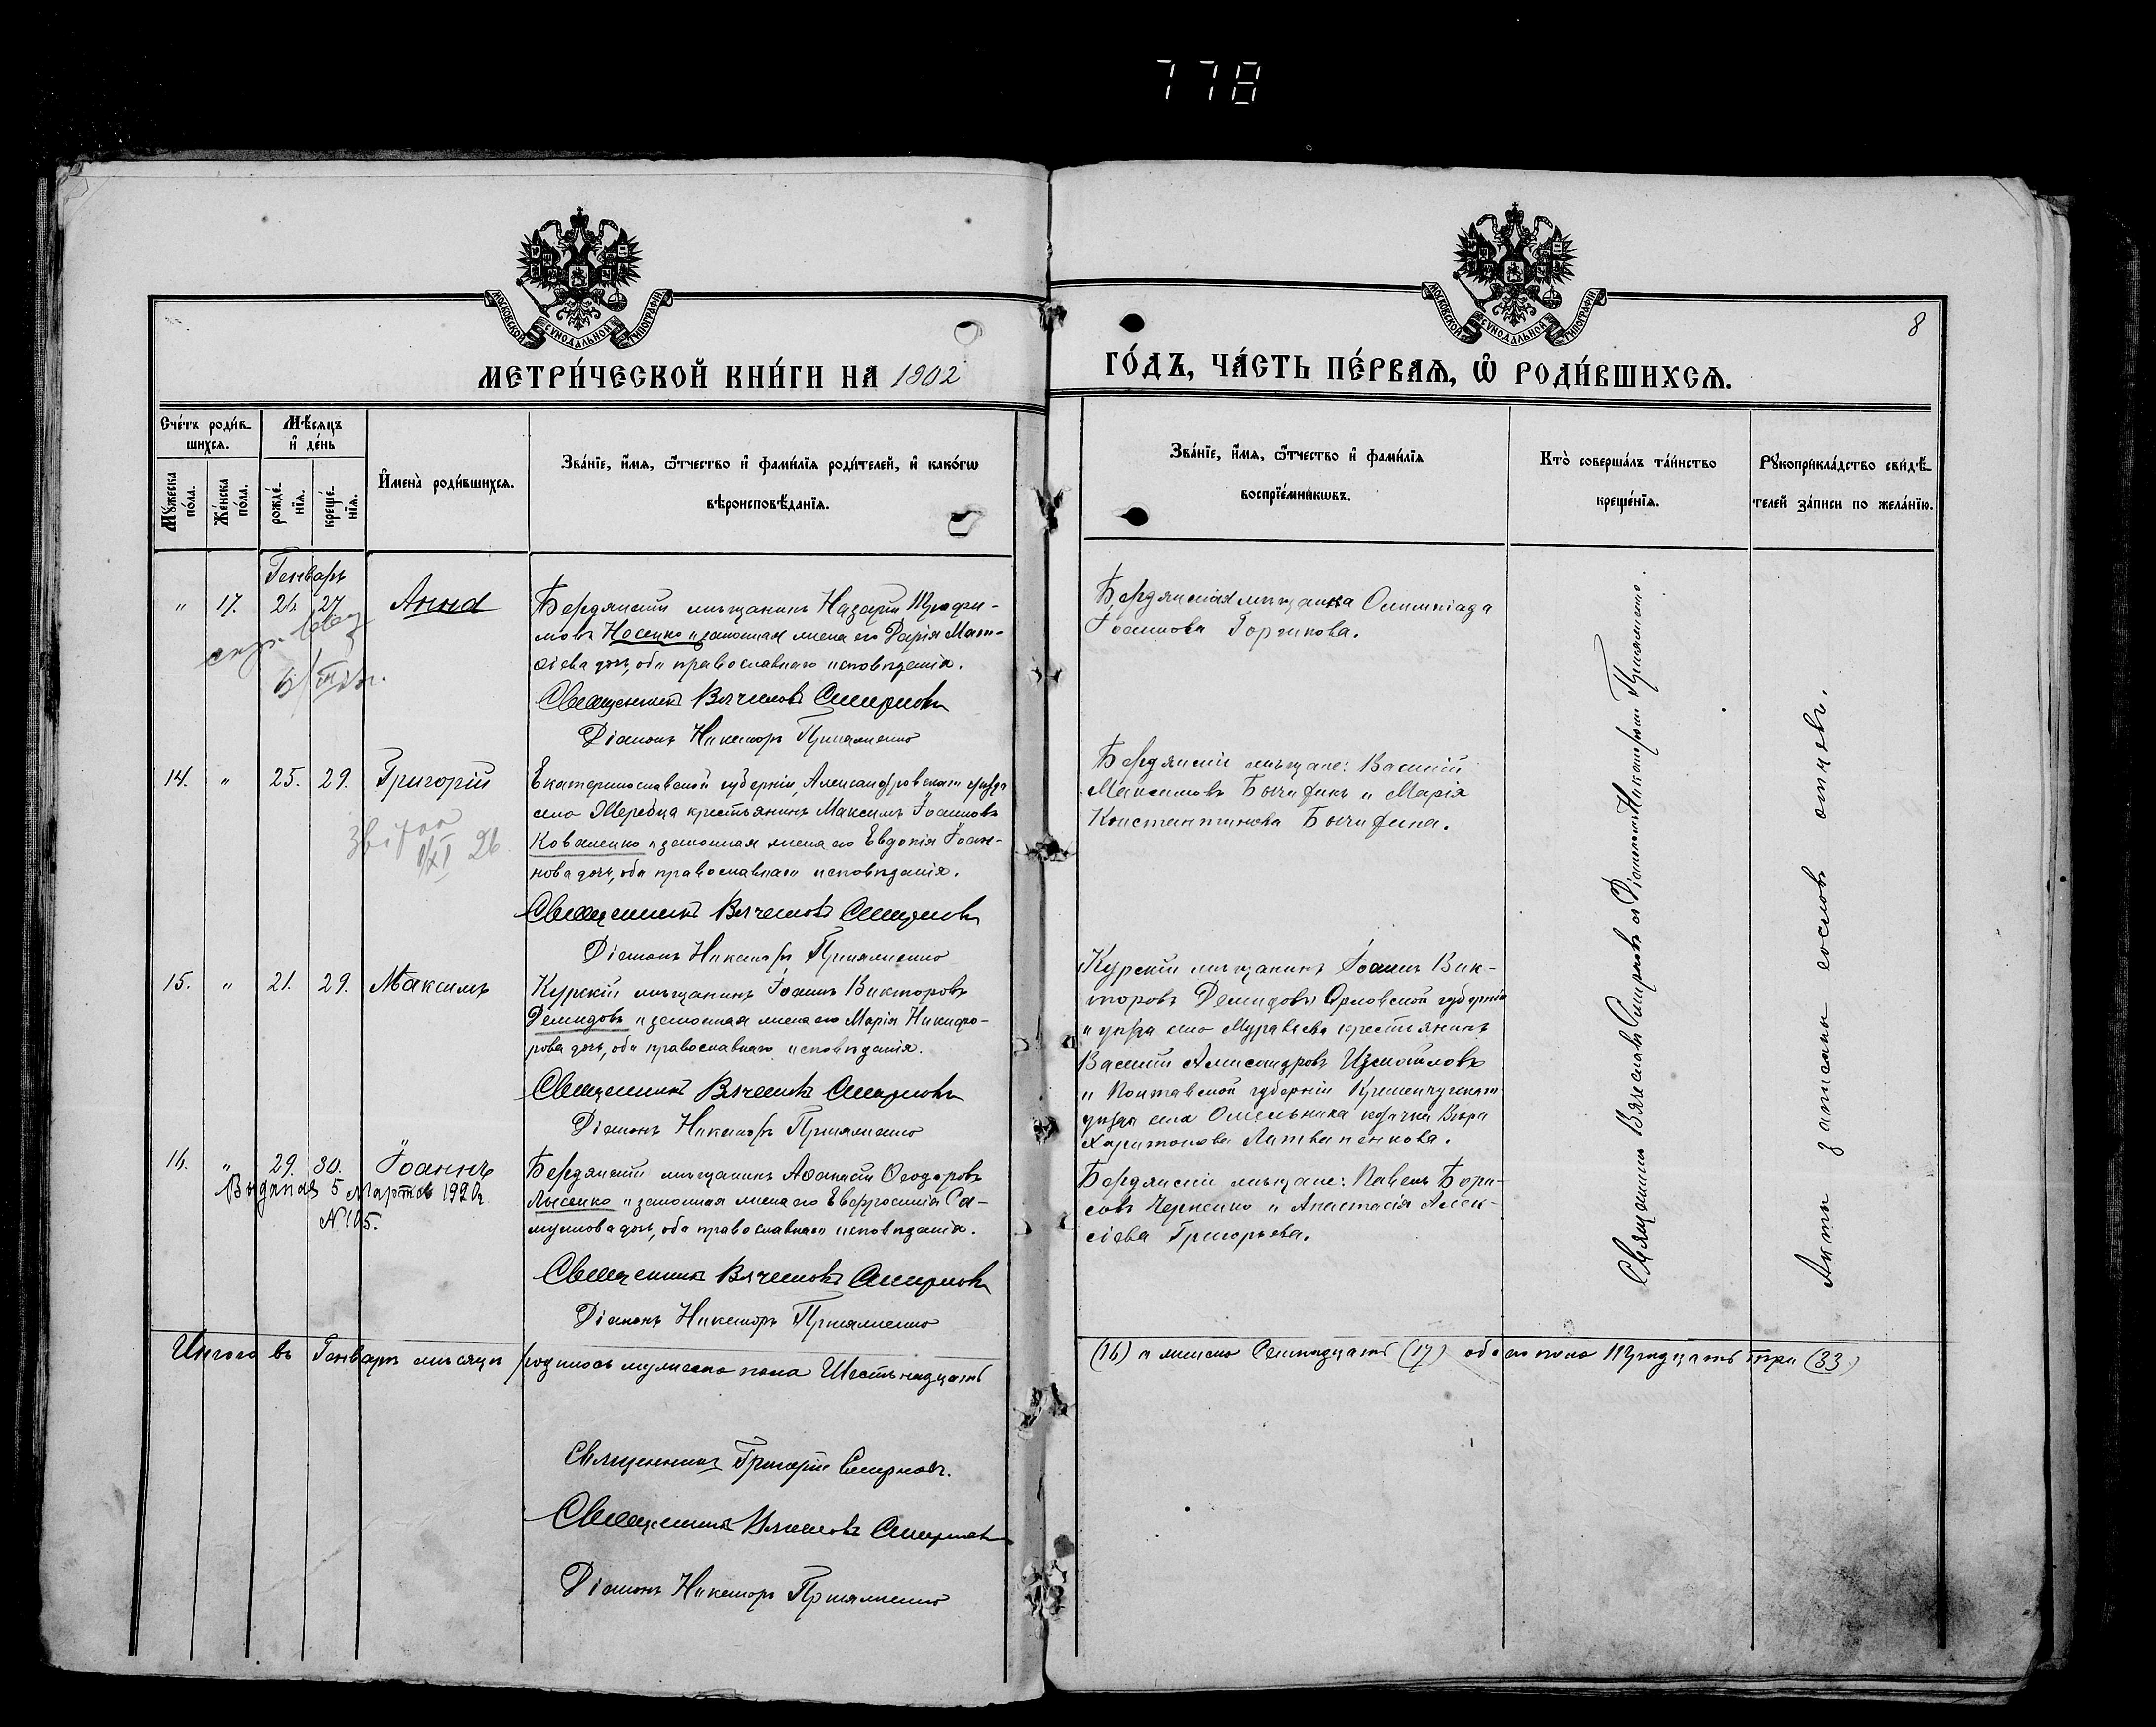 778
МОСКОВСКОЙ СѴНОДАЛЬНОЙ ТИПОГРАФІИ
МОСКОВСКОЙ СѴНОДАЛЬНОЙ ТИПОГРАФІИ
8
МЕТРИ́ЧЕСКОЙ КНИ́ГИ НА 1902
ГО́ДЪ, ЧА́СТЬ ПЕ́РВАѦ, Ѡ҆ РОДИ́ВШИХСѦ.
Сче́тъ роди́в-
шихсѧ.
Мꙋ́жеска по́ла.
Же́нска по́ла.
Мѣ́сѧцъ
и҆ де́нь
рожде́-
нїѧ.
креще́-
нїѧ.
И҆мена̀ роди́вшихсѧ.
Зва́нїе, и҆́мѧ, ѻ҆́тчество и҆ фами́лїѧ роди́телей, и҆ како́гѡ
вѣроисповѣ́данїѧ.
Зва́нїе, и҆́мѧ, ѻ҆́тчество и҆ фами́лїѧ
воспрїе́мникѡвъ.
Кто̀ соверша́лъ та́инство
креще́нїѧ.
Рꙋкоприкла́дство свидѣ́-
телей за́писи по жела́нїю.
Генварь
" 17. 26. 27 Анна
Бердянскій мѣщанинъ Назарій Трофи-
мовъ Носенко и законная жена его Дарія Мат-
ѳіева дочь, оба православнаго исповѣданія.
Священникъ Вячеславъ Смирновъ
Діаконъ Никаноръ
Бердянская мѣщанка Олимпіада
Іоаннова Горшкова.
14. " 25. 29. Григорій
Екатеринославской губерніи, Александровскаго уѣзда
села Жеребца крестьянинъ Максимъ Іоанновъ
Коваленко и законная жена его Евдокія Іоан-
нова дочь, оба православнаго исповѣданія.
Священникъ Вячеславъ Смирновъ
Діаконъ Никаноръ
Бердянскіе мѣщане: Василій
Максимовъ и Марія
Константинова
26
15. " 21. 29. Максимъ
Курскій мѣщанинъ Іоаннъ Викторовъ
Демидовъ и законная жена его Марія Никифо-
рова дочь, оба православнаго исповѣданія.
Священникъ Вячеславъ Смирновъ
Діаконъ Никаноръ
Курскій мѣщанинъ Іоаннъ Вик-
торовъ Демидовъ, Орловской губерніи
и уѣзда села Муравлева крестьянинъ
Василій Александровъ Измайловъ
и Полтавской губерніи Кременчугскаго
уѣзда села Омельника казачка Вѣра
Харитонова Литвиненкова.
16. " 29. 30. Іоаннъ
Выдана 5 Марта 1920 г.
N 105.
Бердянскій мѣщанинъ Аѳанасій Ѳеодоровъ
Лысенко и законная жена его Евфросинія Са-
муилова дочь, оба православнаго исповѣданія.
Священникъ Вячеславъ Смирновъ
Діаконъ Никаноръ
Бердянскіе мѣщане: Павелъ Бори-
совъ Черненко и Анастасія Алек-
сіева Григорьева.
Священникъ Вячеславъ Смирновъ съ Діакономъ Никаноромъ
Акты записаны со словъ отцевъ.
Итого въ Генварѣ мѣсяцѣ родилось мужеска пола Шестьнадцать
(16) и женска Семнадцать (17) обоего пола Тридцать три (33.)
Священникъ Григорій Смирновъ.
Священникъ Вячеславъ Смирновъ
Діаконъ Никаноръ